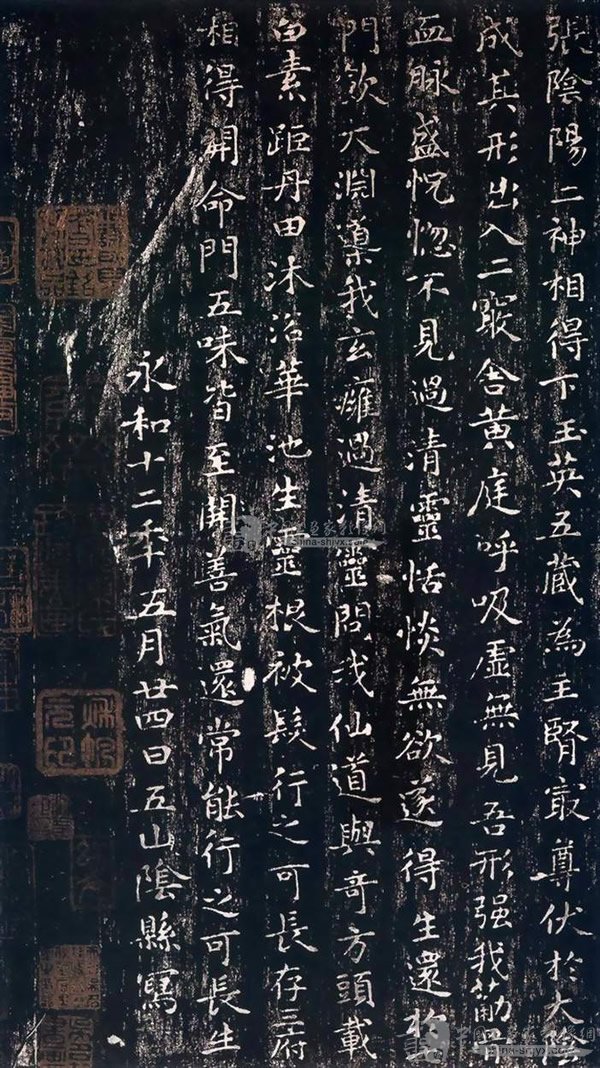 張陰陽二神相得下玉英五藏為主腎最尊伏於大陰
成其形出入二竅舍黃庭呼吸虛無見吾形强我筋骨
血脉盛恍惚不見過清靈恬惔無欲遂得生還於
門飲大淵藻我玄癰過清靈問我仙道與奇方頭載
白素距丹田沐浴華池生靈根被髮行之可長存三府
相得開命門五味皆至開善氣還常能行之可長生
永和十二年五月廿四日五山陰縣寫